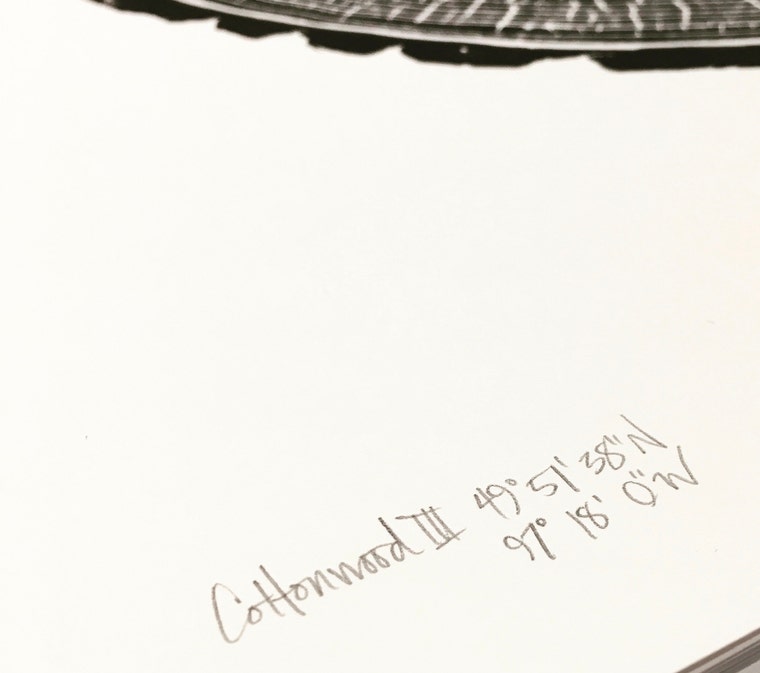 Cottonwood III 49° 51' 38" N
97° 18' 0" W